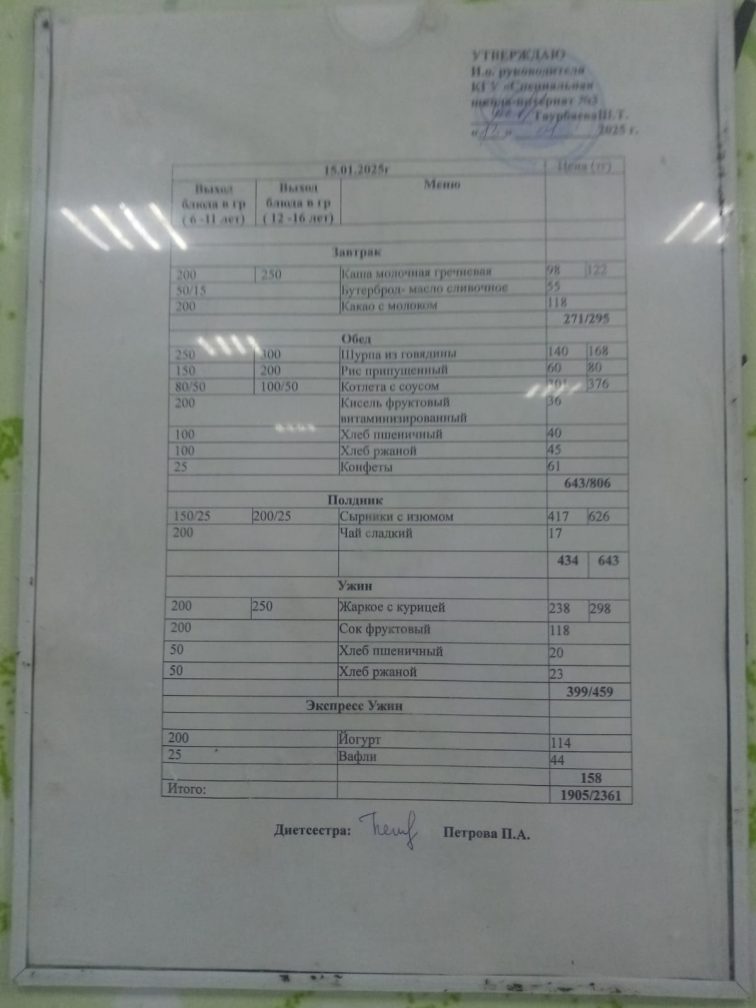 УТВЕРЖДАЮ
И.о. руководителя
КГУ «Специальная
школа-интернат №3
Таурбаева Ш.Т.
«12» 01 2025 г.
15.01.2025г Цена (тг)
Выход блюда в гр ( 6 -11 лет) Выход блюда в гр ( 12 -16 лет) Меню
Завтрак
200 250 Каша молочная гречневая 98 122
50/15 Бутерброд- масло сливочное 55
200 Какао с молоком 118
271/295
Обед
250 300 Шурпа из говядины 140 168
150 200 Рис припущенный 60 80
80/50 100/50 Котлета с соусом 376
200 Кисель фруктовый 36
витаминизированный
100 Хлеб пшеничный 40
100 Хлеб ржаной 45
25 Конфеты 61
643/806
Полдник
150/25 200/25 Сырники с изюмом 417 626
200 Чай сладкий 17
434 643
Ужин
200 250 Жаркое с курицей 238 298
200 Сок фруктовый 118
50 Хлеб пшеничный 20
50 Хлеб ржаной 23
399/459
Экспресс Ужин
200 Йогурт 114
25 Вафли 44
158
Итого: 1905/2361
Диетсестра: Петрова П.А.